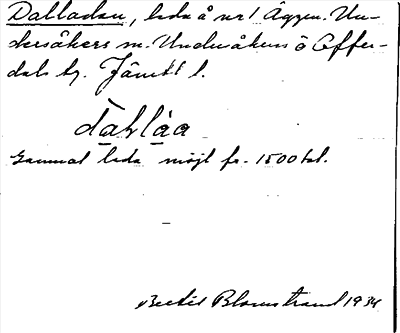 Dalladan, leda å nr 1 Äggen. Un-
dersåkers sn. Undersåkers o Offer-
dals tg. Jämtl l.
dahláa
Gammal leda möjl fr. 1500 tal.
Bertil Blomstrand 1934